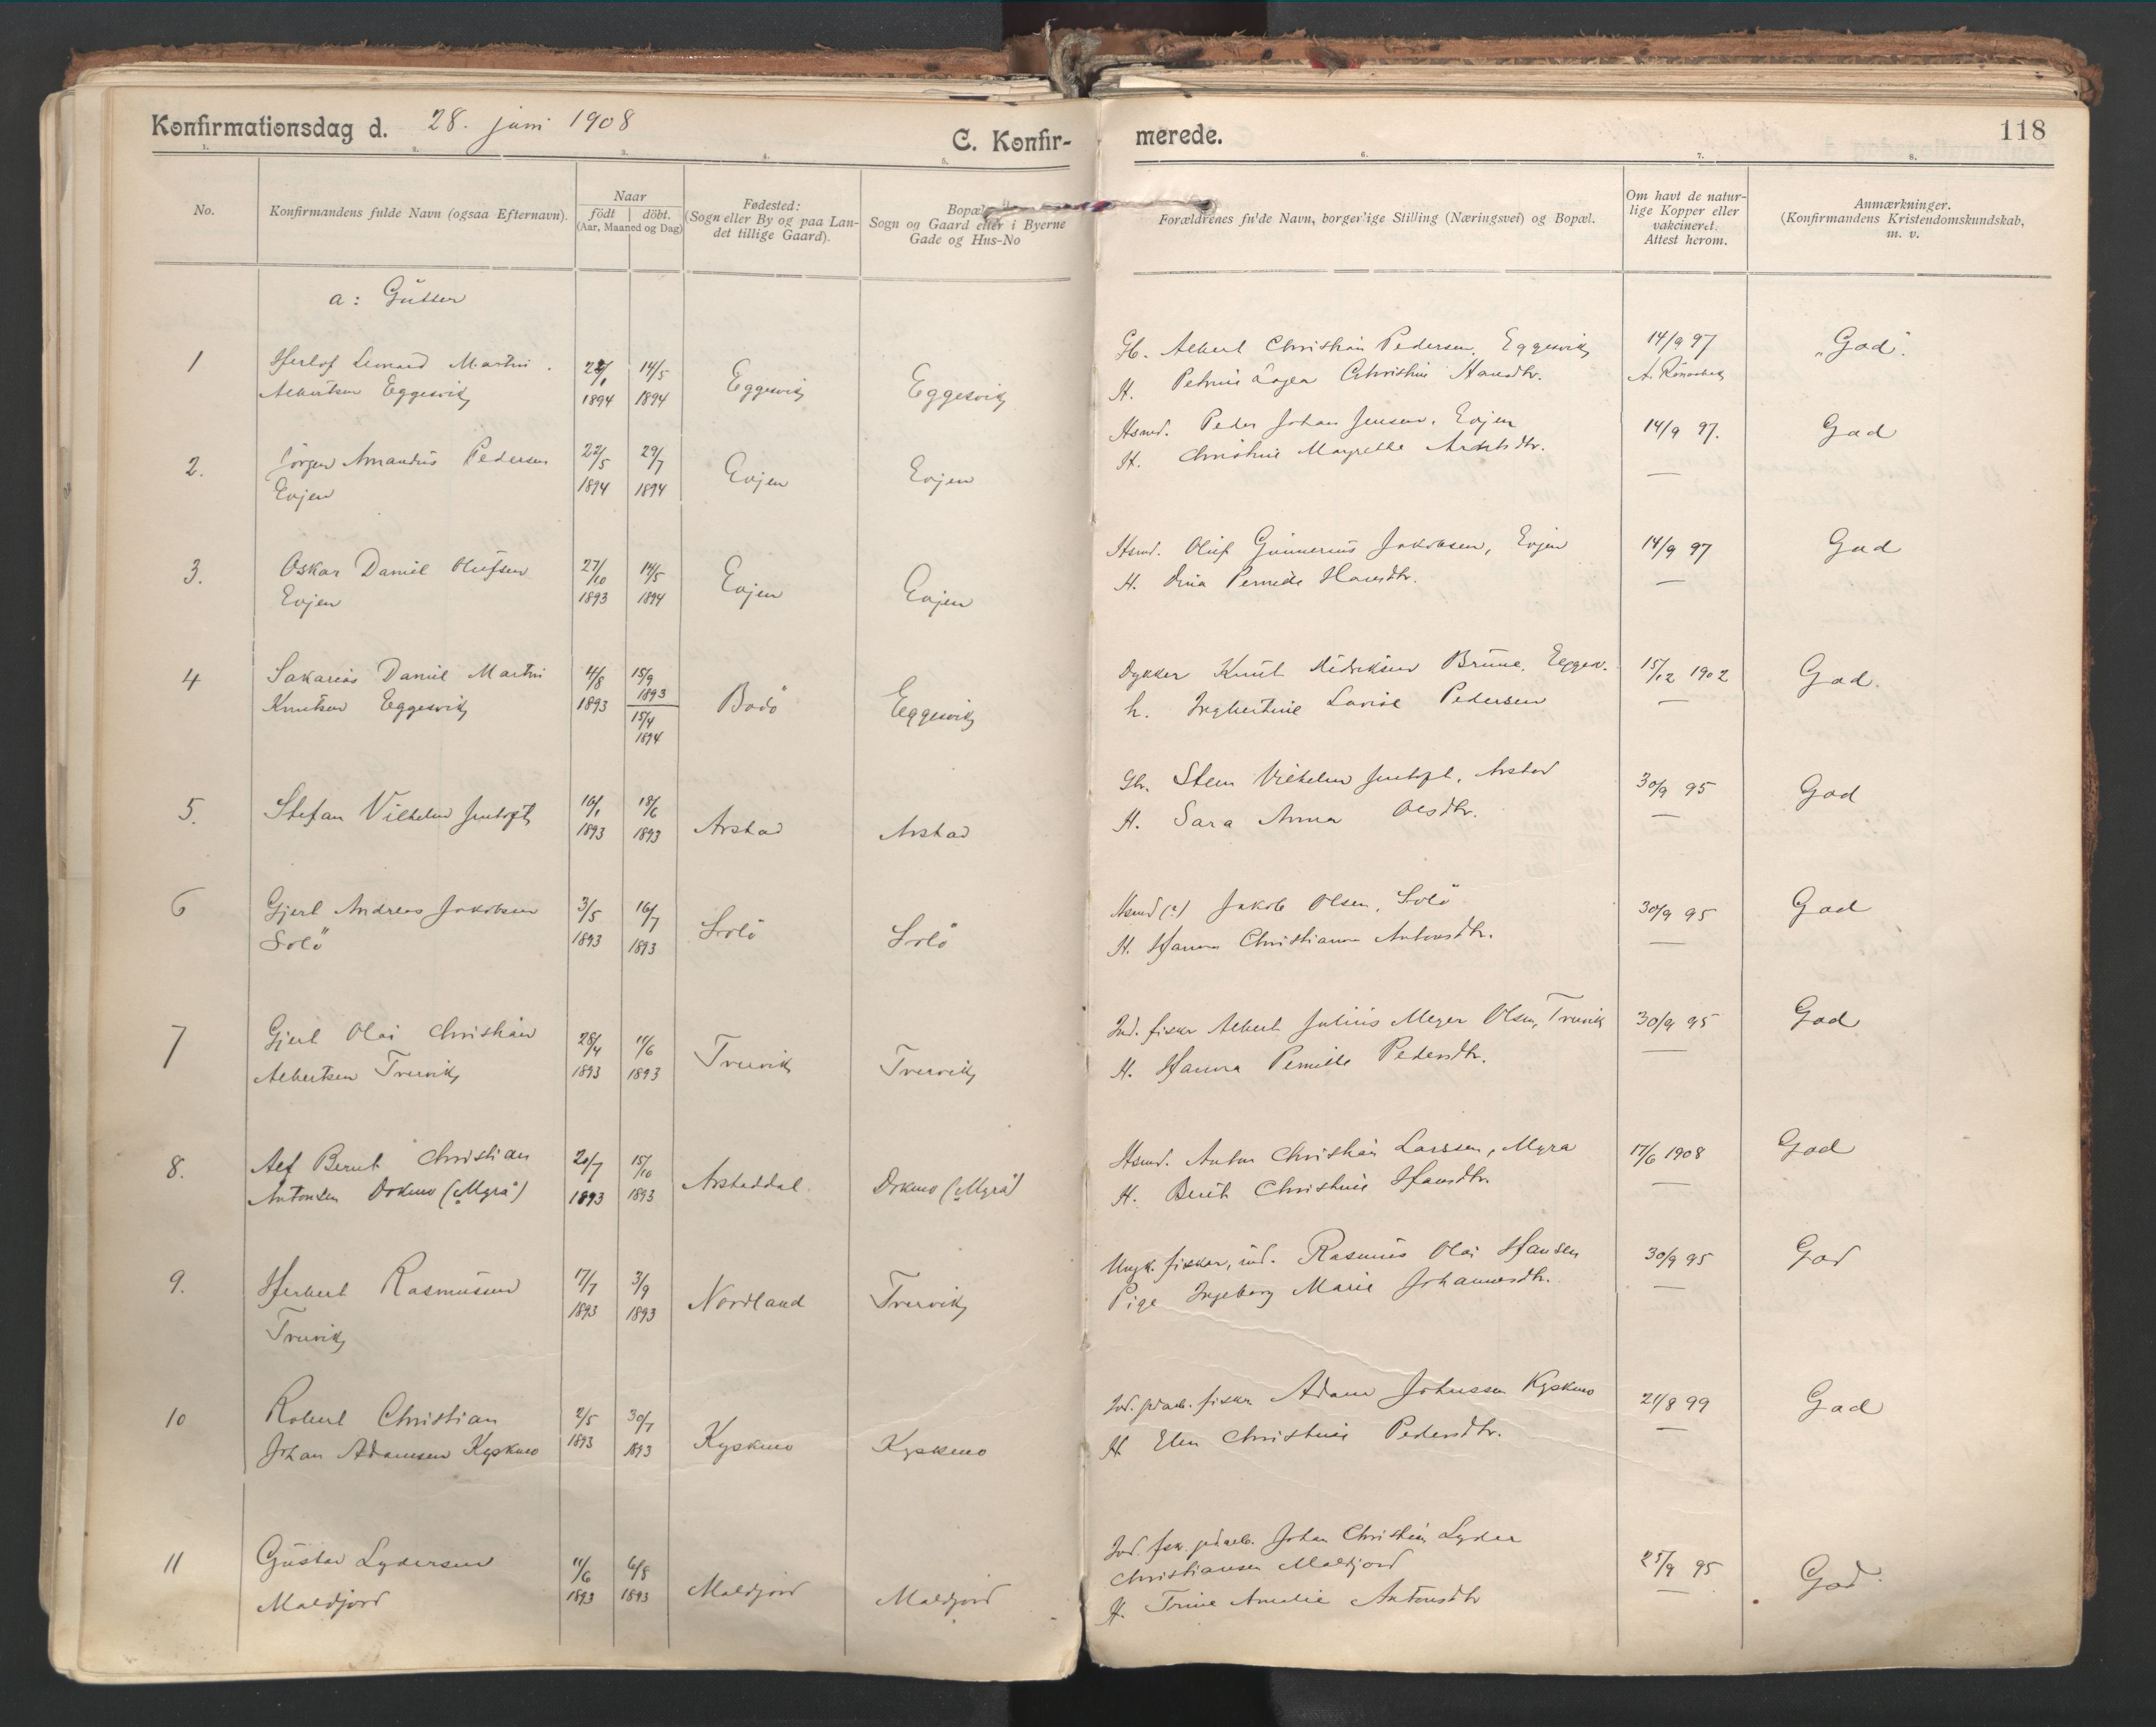 Konfirmationsdag d. 28. juni 1908
C. Konfir-
merede.
118
1. 2. 3. 4. 5. 6. 7. 8.
No.
Konfirmandens fulde Navn (ogsaa Efternavn).
Naar
födt döbt.
(Aar, Maaned og Dag)
Fødested:
(Sogn eller By og paa Lan-
det tillige Gaard).
Bopæl
Sogn og Gaard eller i Byerne
Gade og Hus-No
Forældrenes fulde Navn, borgerlige Stilling (Næringsvei) og Bopæl.
Om havt de natur-
lige Kopper eller
vakcineret.
Attest herom.
Anmærkninger.
(Konfirmandens Kristendomskundskab,
m. v.
a: Gutter
1 Herlof Leonard Martin
Albertsen Eggesvik
1894
14/5 1894
Eggesvik
Eggesvik
Gb. Albert Christian Pedersen, Eggesvik
H. Christine Hansdtr.
14/9 97
"God".
2. Jörgen Amandus Pedersen
Evjen
22/5 1894
29/7 1894
Evjen
Evjen
Hsmd. Peder Johan Jensen, Evjen
H. Christine Margrethe
14/9 97.
—
God
3. Oskar Daniel Olufsen
Evjen
27/10 1893
14/5 1894
Evjen
Evjen
Hsmd. Oluf Gunnerius Jakobsen, Evjen
H. Dina Pernille Hansdtr.
14/9 97
—
God
4 Sakarias Daniel Martin
Knutsen Eggesvik
4/8 1893
15/9 1893
15/4 1894
Bodö
Eggesvik
Dykker Knut Bruun, Eggesv.
h. Ingbertine Lovise Pedersen
15/12 1902
—
God.
5. Stefan Vilhelm Jentoft
16/1 1893
18/6 1893
Arstad
Arstad
Gb. Sten Vilhelm Jentoft, Arstad
H. Sara Anna Olsdtr.
30/9 95
—
God
6 Gjert Andreas Jakobsen
Solö
3/5 1893
16/7 1893
Solö
Solö
Hsmd (?) Jakob Olsen, Solö
H. Hanna Christianna Antonsdtr.
30/9 95
—
God
7 Gjert Olai Christian
Albertsen Trervik
28/4 1893
11/6 1893
Trervik
Trervik
Ind. fisker Albert Julius Meyer Olsen, Trervik
H. Hanna Pernille Pedersdtr.
30/9 95
—
God
8. Alf Bernt Christian
Antonsen Dokmo (Myra)
20/7 1893
15/10 1893
Arstaddal
Dokmo (Myra)
Hsmd. Anton Christian Larssen, Myra
H. Berit Christine Hansdtr.
17/6 1908
—
God
9. Herbert Rasmussen
Trervik
17/7 1893
3/9 1893
Nordland
Trervik
Ungk. fisker, ind. Rasmus Olai Hansen
Pige Ingeborg Marie Johannesdtr.
30/9 95
—
God
10 Robert Christian
Johan Adamsen Kypkmo
2/5 1893
30/7 1893
Kypkmo
Kypkmo
Ind. jordarb. fisker Adam Johnssen Kypkmo
H Elen Christine Pedersdtr.
21/8 99
—
God
11 Gustav Lydersen
Maldjord
11/6 1893
6/8 1893
Maldjord
Maldjord
Ind. fisk. jordarb. Johan Christian Lyder
Christiansen Maldjord
H. Trine Amelie Antonsdtr
25/9 95
—
God.